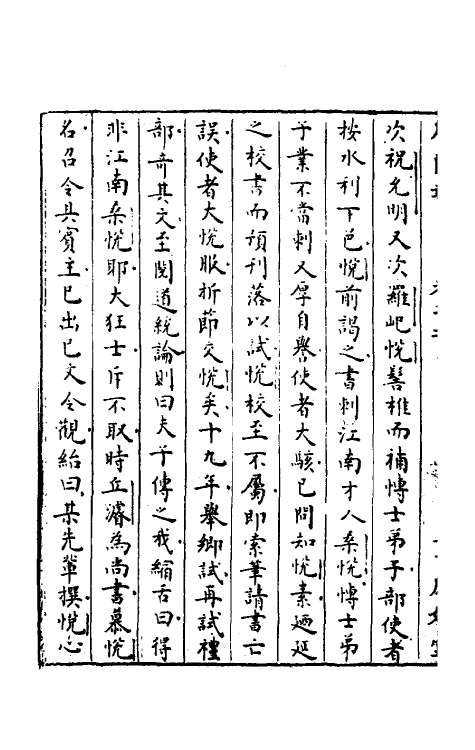 次祝允明又次羅𤣱悅髫椎而補慱士弟子部使者
按水利下邑悅前謁之書刺江南才人桑悅慱士弟
子業不當刺又厚自譽使者大駭已問知悅素廼延
之校書而預刋落以試悅校至不屬即索筆請書亡
誤使者大悅服折節交悅矣十九年舉鄉試再試禮
部竒其文至閱道統論則曰夫子傳之我縮舌曰得
非江南桑悅耶大狂士斥不取時丘濬為尚書慕悅
名召令具賔主已出已文令觀紿曰某先軰撰悅心